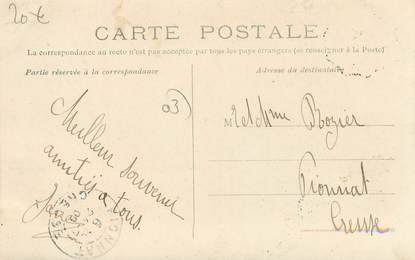 20€
CARTE POSTALE
La correspondance au recto n'est pas acceptée par tous les pays étrangers (se renseigner à la Poste)
Partie réservée à la correspondance
Adresse du destinataire
03)
Meilleur souvenir
amitiés à tous.
M et Mme Rozier
Pionnat
Creuse